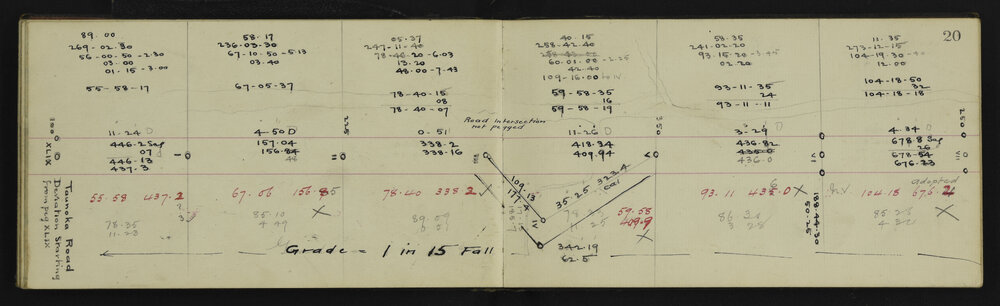 20
89.00
269-02.30
56-00-50-2.30
03.00
01.15-3.00
55-58-17
11-24 D
446.2 Sag
07
446.13
437.3
55.58 437.2
78.35
11.23
100
XLIX
Taunoka Road
Deviation Starting
from peg XLIX
58.17
236-03-30
67-10-50-5.13
03.40
67-05-37
4-50 D
157.04
156.84
67.06 156.85
X
85.10
4.49
Grade = 1 in 15 Fall
05-37
247-11-40
78-46-20-6.03
13-20
48.00-7.43
78-40-15
08
78-40-07
0-51
338.2
338.16
78.40 338.2 X
89.09
40.15
258-42-40
60-01-00-2.25
42.40
109-16-00
59-58-35
16
59-58-19
Road intersection
not pegged
11-26 D
418.34
409.94
109.13
177.4
VI
35-25 323.4
cal
59.58
409.9
X
342.19
62.5
350
58.35
241-02-20
93-15-20-3.45
02.20
93-11-35
24
93-11-11
3-29 D
436.82
435.0
436.0
93.11 435.0 X
86 30
3 28
188-44-30
50.25
11.35
273-12-15
104-19-30
12.00
104-18-50
32
104-18-18
4.34 D
678.8 Sag
26
678-54
676.33
adopted
104.18 676.2
85.25
4 32
X
250
VII